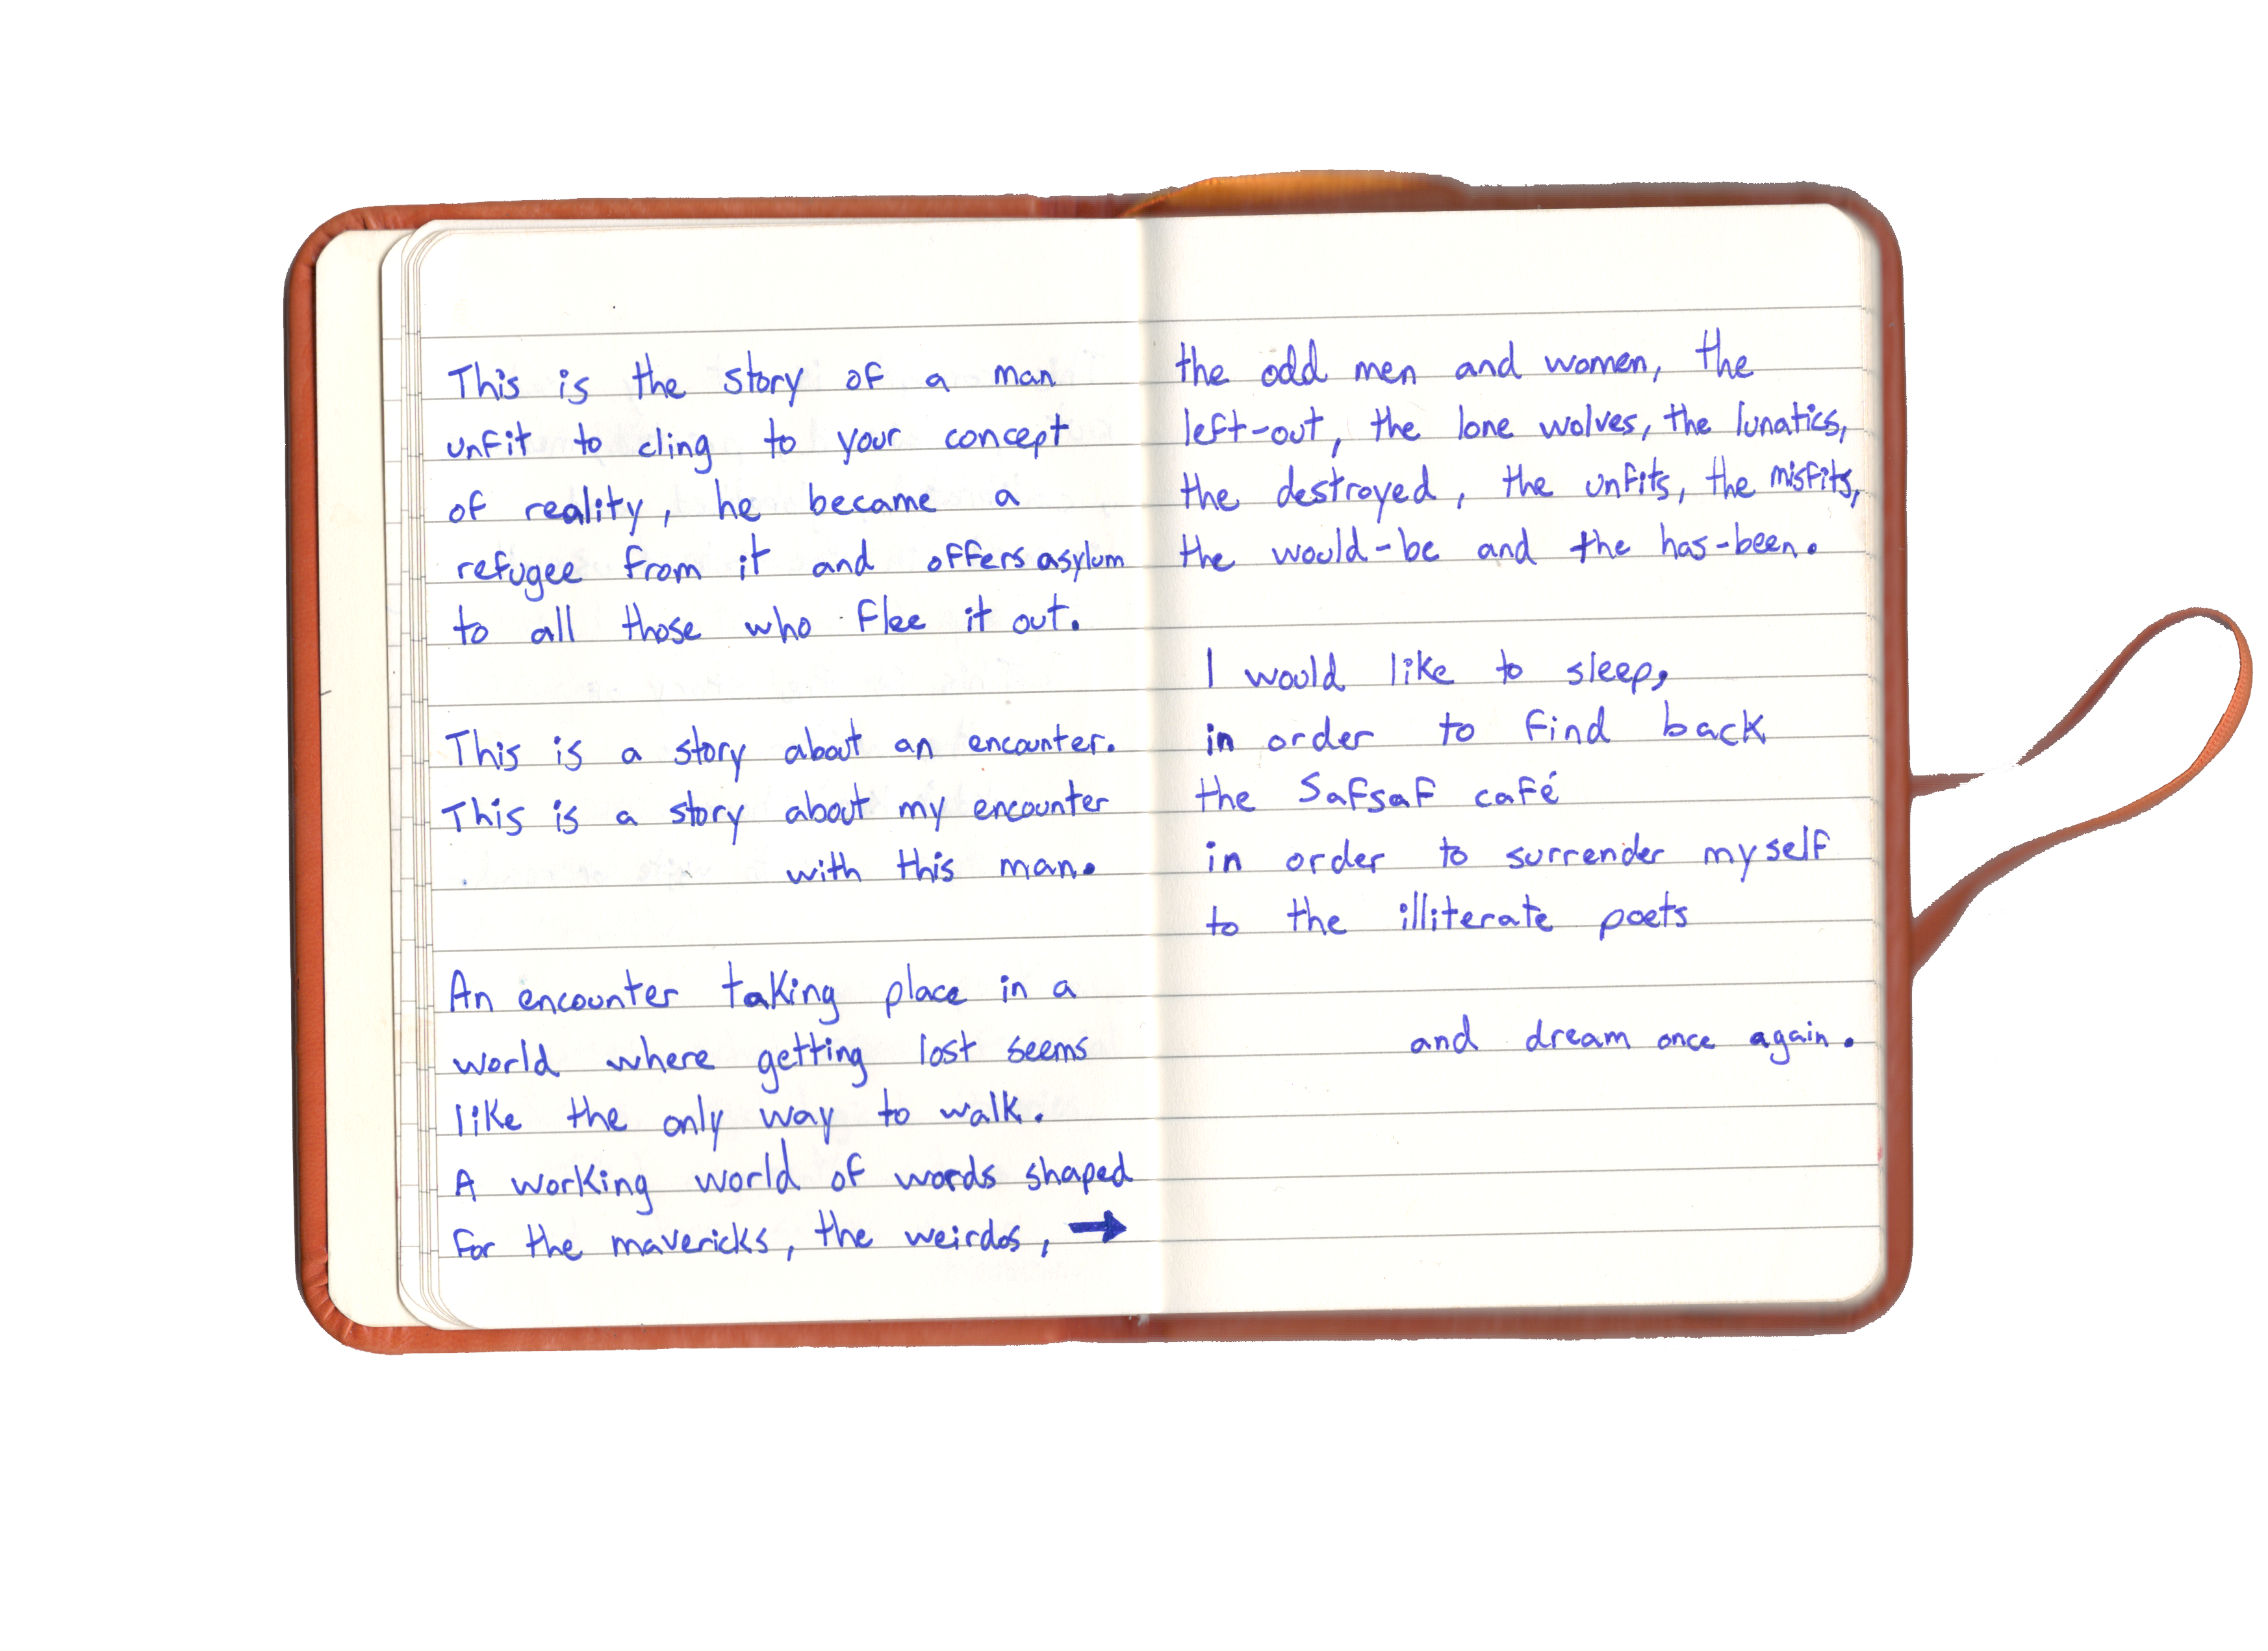 This is the story of a man
unfit to cling to your concept
of reality, he became a
refugee from it and offers asylum
to all those who flee it out.
This is a story about an encounter.
This is a story about my encounter
with this man.
An encounter taking place in a
world where getting lost seems
like the only way to walk.
A working world of words shaped
for the mavericks, the weirdos, →
the odd men and women, the
left-out, the lone wolves, the lunatics,
the destroyed, the unfits, the misfits,
the would-be and the has-been.
I would like to sleep,
in order to find back
the Safsaf café
in order to surrender myself
to the illiterate poets
and dream once again.